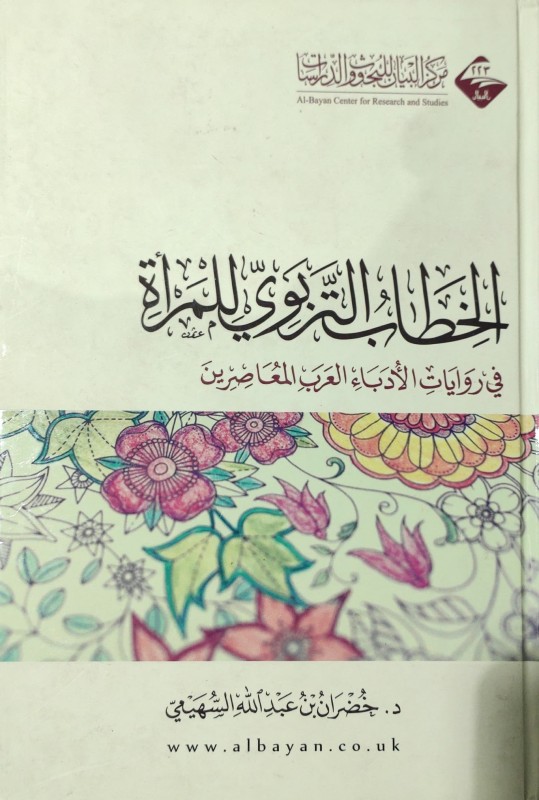 مركز البيان للبحوث والدراسات
Al-Bayan Center for Research and Studies
٢٢٣
البيان
الخِطَابُ التَّربَويّ للمَرأة
في روَاياتِ الأدبَاءِ العرَب المُعَاصِرينَ
د. خُضرَانُ بْنُ عَبْدِ اللهِ السُّهَيْمِيّ
www.albayan.co.uk